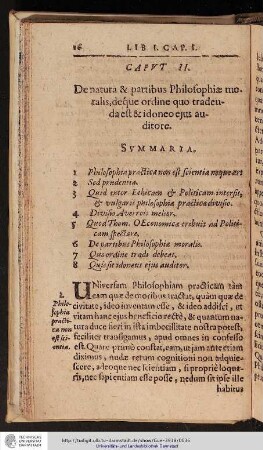 16 LIB I. CAP. I.
CAPVT II.
De natura & partibus Philosophiæ mo-
ralis, deque ordine quo traden-
da est & idoneo ejus au-
ditore.
SVMMARIA.
1 Philosophia practica non est scientia neque ars
2 Sed prudentia.
3 Quid inter Ethicam & Politicam intersit,
& vulgaris philosophiæ practicæ divisio.
4 Divisio Averrois melior.
5 Quod Thom. OEconomica tribuit ad Politi-
cam spectare.
6 De partibus Philosophiæ moralis.
7 Quo ordine tradi debeat.
8 Quis sit idoneus ejus auditor.
1.
Philo-
sophia
practi-
ca non
est sci-
entia.
Universam Philosophiam practicam tàm
eam quæ de moribus tractat, quàm quæ de ci-
vitate, ideo inventam esse, & ideo addisci, ut
vitam hanc ejus beneficio rectè, & quantum na-
tura duce heri in ista imbecillitate nostra potest,
feliciter transigamus, apud omnes in confesso
est. Quare primò constat, eam, ut jam ante etiam
diximus, nudæ rerum cognitioni non adquie-
scere, adeoque nec scientiam, si propriè loqua-
ris, nec sapientiam esse posse, nedum sit ipse ille
habitus
Universitäts- und Landesbibliothek Darmstadt